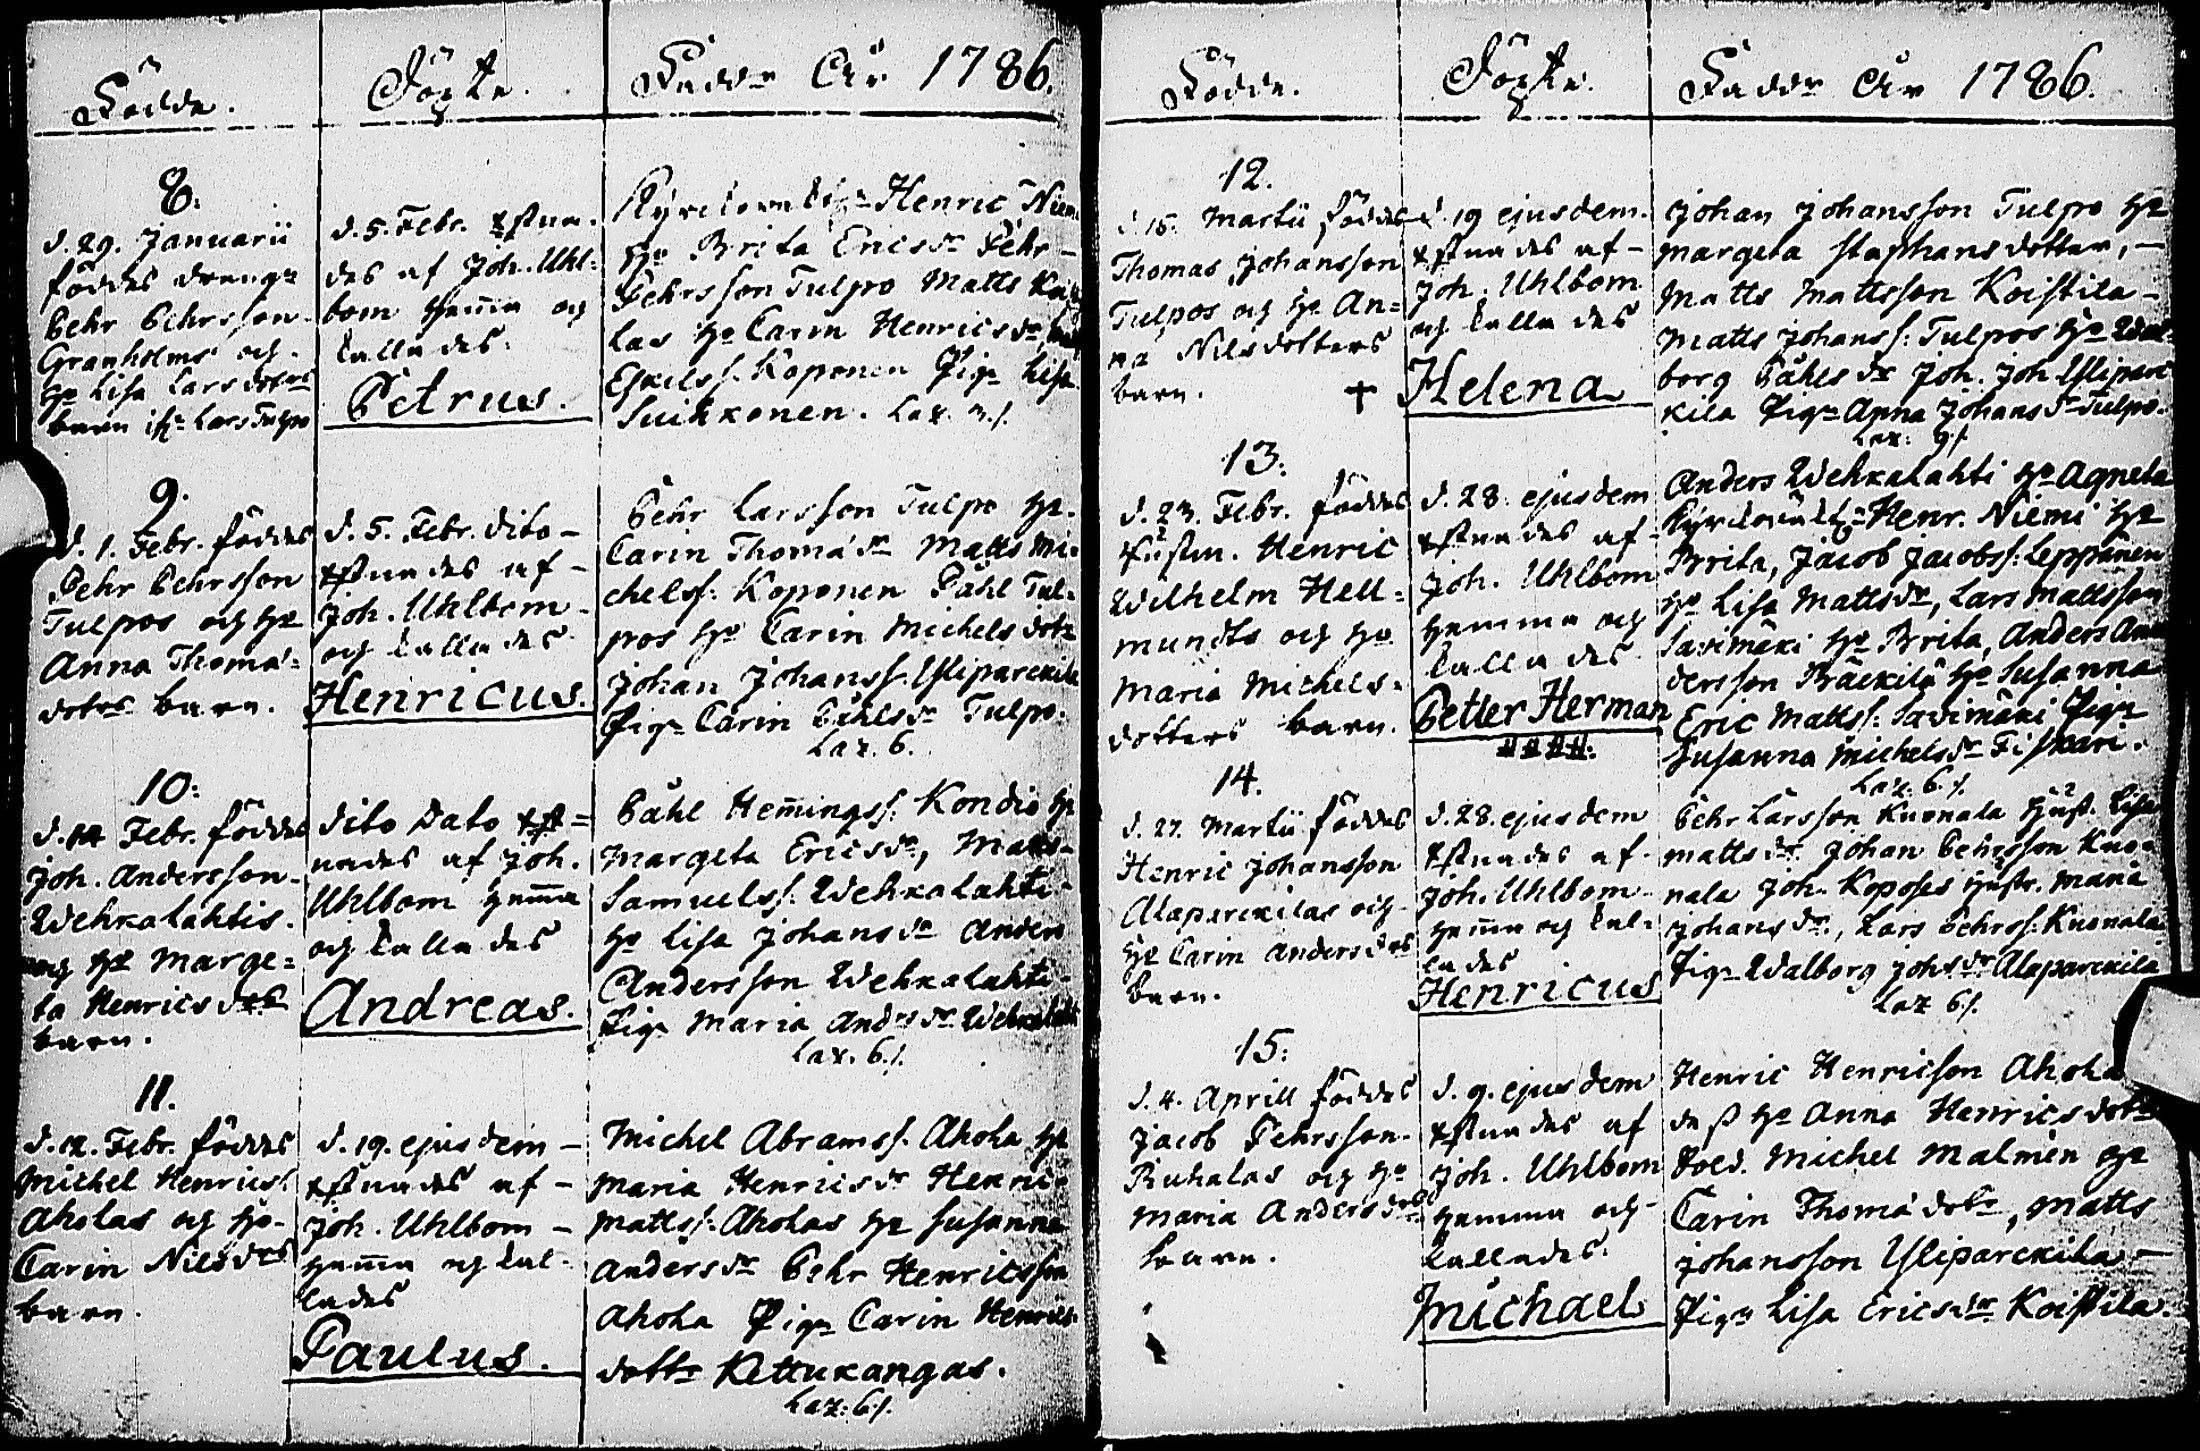 Födde.
Döpte.
Faddr År 1786.
8.
d. 29. Januarii
föddes drengs
Pehr Pehrsson
Granholms och
Ho Lisa Larsdotrs
barn Lars Tulpo
d. 5. Febr.
des af Joh. Uhl=
bom hema och
kallades.
Petrus.
Henric Niem
ho Brita Ericsdr Pehr -
Pehrsson Tulpo Matts
las ho Carin Henricsdr,
Eskilss. Koponen Pigr Lisa
Suikkonen. Lax.
9.
d. 1. Febr. föddes
Pehr Pehrsson
Tulpos och ho
Anna Thoma=
dotrs barn.
d. 5. Febr. dito -
xstnades af -
Joh. Uhlbom -
och kallades
Henricus.
Pehr Larsson Tulpo ho
Carin Thomædr Matts Mi=
chelss. Koponen Påhl Tul=
pos ho Carin Michelsdotr
Johan Johanss. Yliparckila
Pigr Carin Påhlsdr Tulpo.
Lax. 6.
10:
Febr. föddes
Joh. Andersson
Wehkalahtis
och ho Marge=
ta Henricsdrs
barn.
dito Dato xst=
nades af Joh.
Uhlbom hema
och kallades
Andreas.
Påhl Hemingss. Kondio ho
Margeta Ericsdr, Matts
Samuelss. Wehkalahti
ho Lisa Johansdr Anders
Andersson Wehkalahti
Pigr Maria Andrsdr Wehkalahti
Lax. 6./.
11.
d. 12. Febr. föddes
Michel Henricss.
Aholas och ho
Carin Nilsdrs
barn.
d. 19. ejusdem -
xstnades af -
Joh. Uhlbom -
hema och kal=
lades
Paulus.
Michel Abramss. Ahola ho
Maria Henricsdr Henric
Mattss. Aholas ho Susanna
Andersdr Pehr Henricsson
Ahola Pigr Carin Henrics
dottr Kettukangas.
Lax: 6./.
Födde.
Döpte.
Faddr År 1786.
12.
d. 15. Martii föddes
Thomas Johansson
Tulpos och ho An=
na Nilsdotters
barn.
d. 19 ejusdem.
xstnades af -
Joh. Uhlbom
och kallades
+ Helena
Johan Johansson Tulpo ho
Margeta Staphansdotter, -
Matts Mattsson Koistila -
Matts Johanss: Tulpos ho Wal=
borg Påhlsdr Joh. Joh Yliparc
kila Pigr Anna Johansdr Tulpo.
Lax: 9./.
13.
d. 23. Febr. föddes
Henric
Wilhelm Hell=
mundts och ho
Maria Michels=
dotters barn.
d. 28. ejusdem
xstnades af -
Joh. Uhlbom
hemma och
kallades
Petter Herman
####.
Anders Wehkalahti ho Agneta
Henr. Niemi ho
Brita, Jacob Jacobss: Leppänen
ho Lisa Mattsdr, Lars Mattsson
Savimäki ho Brita, Anders An
dersson Räckilä ho Susanna
Eric Mattss: Savimäki Pigr
Susanna Michelsdr Fiskari.
Lax: 6./.
14.
d. 27. Martii föddes
Henric Johansson
Alaparckilas och
ho Carin Andersdrs
barn.
d. 28. ejusdem
xstnades af -
Joh. Uhlbom
hema och kal=
lades
Henricus
Pehr Larsson Kuonala hust. Lisa
Mattsdr. Johan Pehrsson Kuo=
nala Joh. Koposes hustr. Maria
Johansdr., Lars Pehrss: Kuonala
Pigr Walborg Johsdr Alaparckila
Lax 6/.
15:
d. 4. Aprill föddes
Jacob Pehrsson
Ruhalas och ho
Maria Andersdrs
barn.
d. 9. ejusdem
xstnades af
Joh. Uhlbom
hemma och
kallades.
Michael
Henric Henricson Ahola
dess ho Anna Henricsdotr
Sold. Michel Malmén ho
Carin Thomædotr, Matts
Johansson Yliparckila -
Pigr Lisa Ericsdr Koistila.